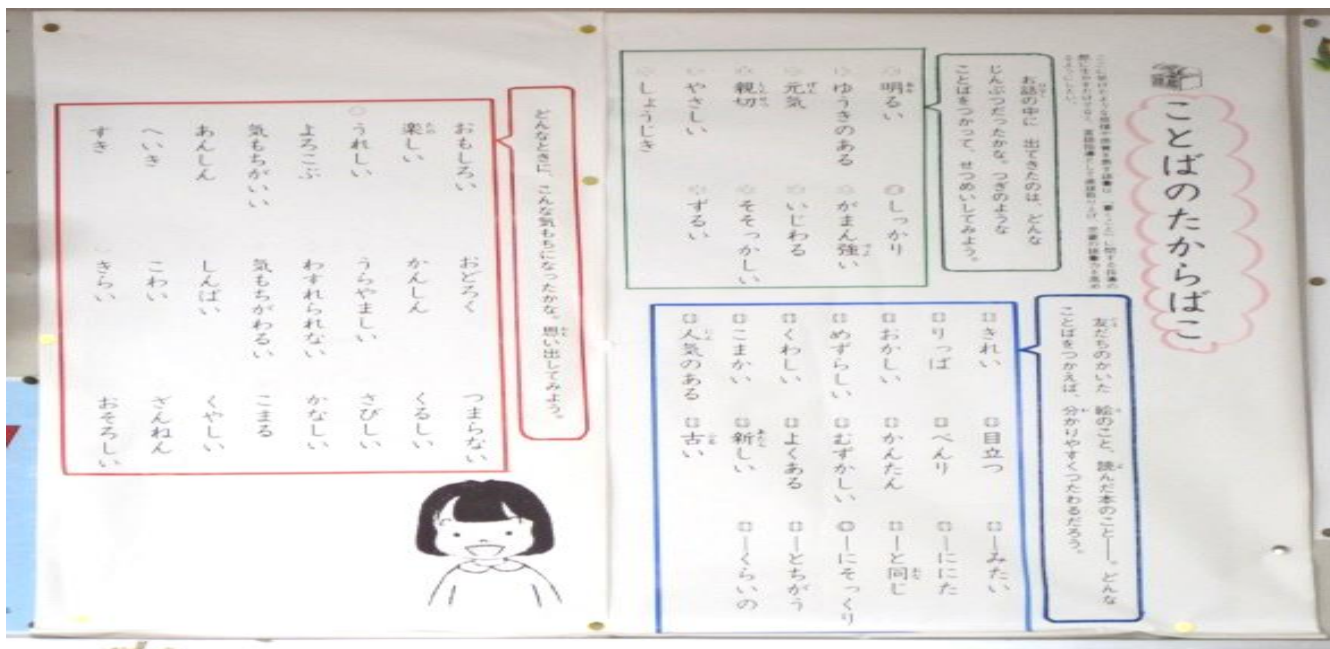 ことばのたからばこ
お話の中に 出てきたのは、どんな
じんぶつだったかな。つぎのような
ことばをつかって、せつめいしてみよう。
明るい
しっかり
ゆうきのある
がまん強い
元気
いじわる
親切
そそっかしい
やさしい
ずるい
しょうじき
友だちのかいた 絵のこと、読んだ本のこと――。どんな
ことばをつかえば、分かりやすくつたわるだろう。
きれい
目立つ
―みたい
りっぱ
べんり
―ににた
おかしい
かんたん
―と同じ
めずらしい
むずかしい
―にそっくり
くわしい
よくある
―とちがう
こまかい
新しい
―くらいの
人気のある
古い
どんなときに、こんな気もちになったかな。思い出してみよう。
おもしろい
おどろく
つまらない
楽しい
かんしん
くるしい
うれしい
うらやましい
さびしい
よろこぶ
わすれられない
かなしい
気もちがいい
気もちがわるい
こまる
あんしん
しんぱい
くやしい
へいき
こわい
ざんねん
すき
きらい
おそろしい